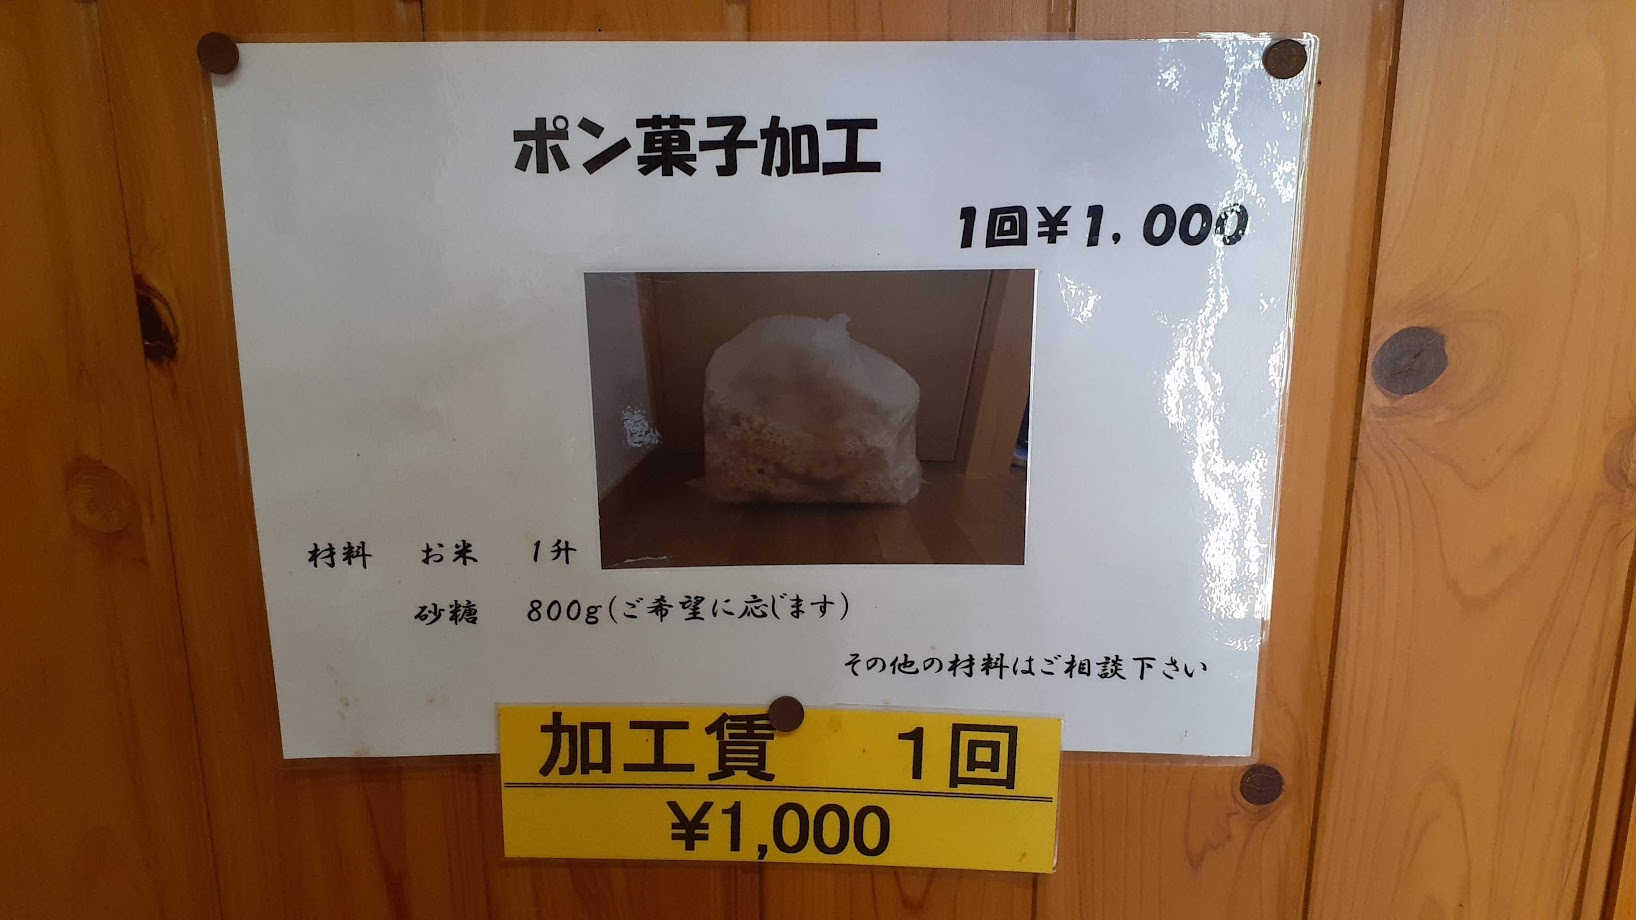 ポン菓子加工
1回¥1,000
材料 お米 1升
砂糖 800g(ご希望に応じます)
その他の材料はご相談下さい
加工賃 1回
¥1,000